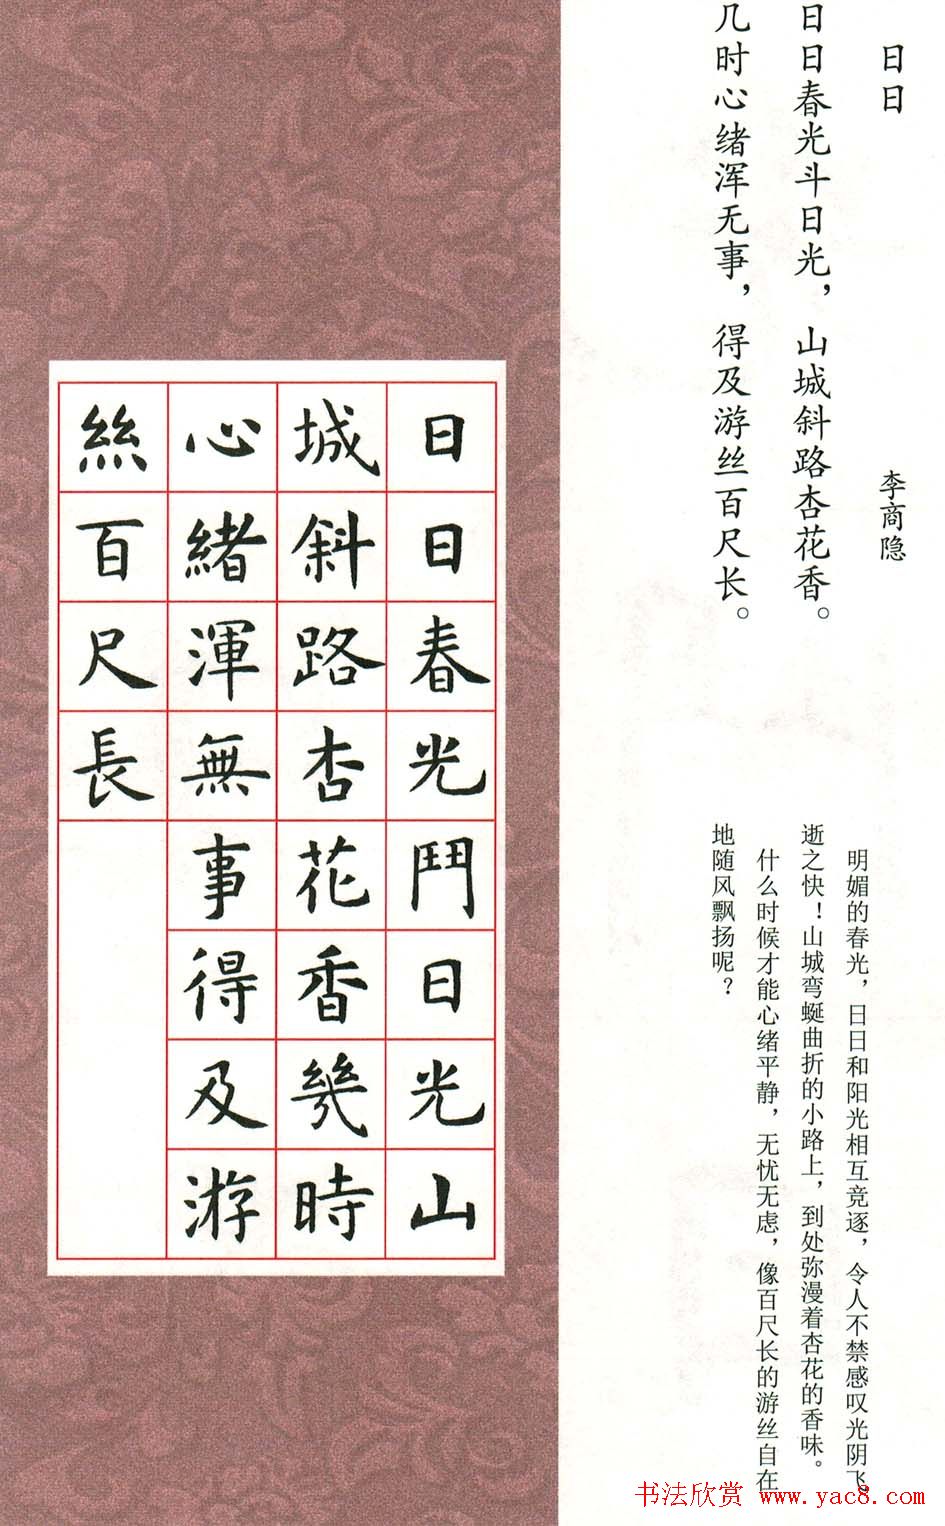 日日
李商隐
日日春光斗日光，山城斜路杏花香。
几时心绪浑无事，得及游丝百尺长。
明媚的春光，日日和阳光相互竞逐，令人不禁感叹光阴飞
逝之快！山城弯蜒曲折的小路上，到处弥漫着杏花的香味。
什么时候才能心绪平静，无忧无虑，像百尺长的游丝自在
地随风飘扬呢？
日日春光鬥日光山
城斜路杏花香幾時
心緒渾無事得及游
絲百尺長
书法欣赏 www.yac8.com